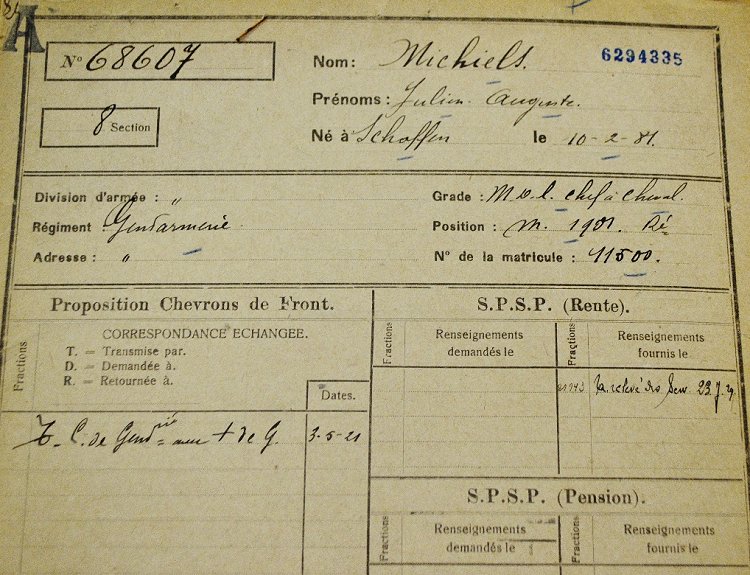 A
N° 68607
Nom: Michiels.
6294335
Prénoms: Julien Auguste.
8 Section
Né à Schaffen le 10-2-81.
Division d'armée: "
Grade: M.d.l. chef à cheval.
Régiment: Gendarmerie
Position: M. 1901.
Adresse: "
N° de la matricule: 11500.
Proposition Chevrons de Front.
S.P.S.P. (Rente).
Fractions
CORRESPONDANCE ECHANGEE.
T. = Transmise par.
D. = Demandée à.
R. = Retournée à.
Dates.
Fractions
Renseignements
demandés le
Fractions
Renseignements
fournis le
T. C. de Gend rie avec + de G. 3-5-21
relevé des Serv. 23.7.
S.P.S.P. (Pension).
Fractions
Renseignements
demandés le
Fractions
Renseignements
fournis le